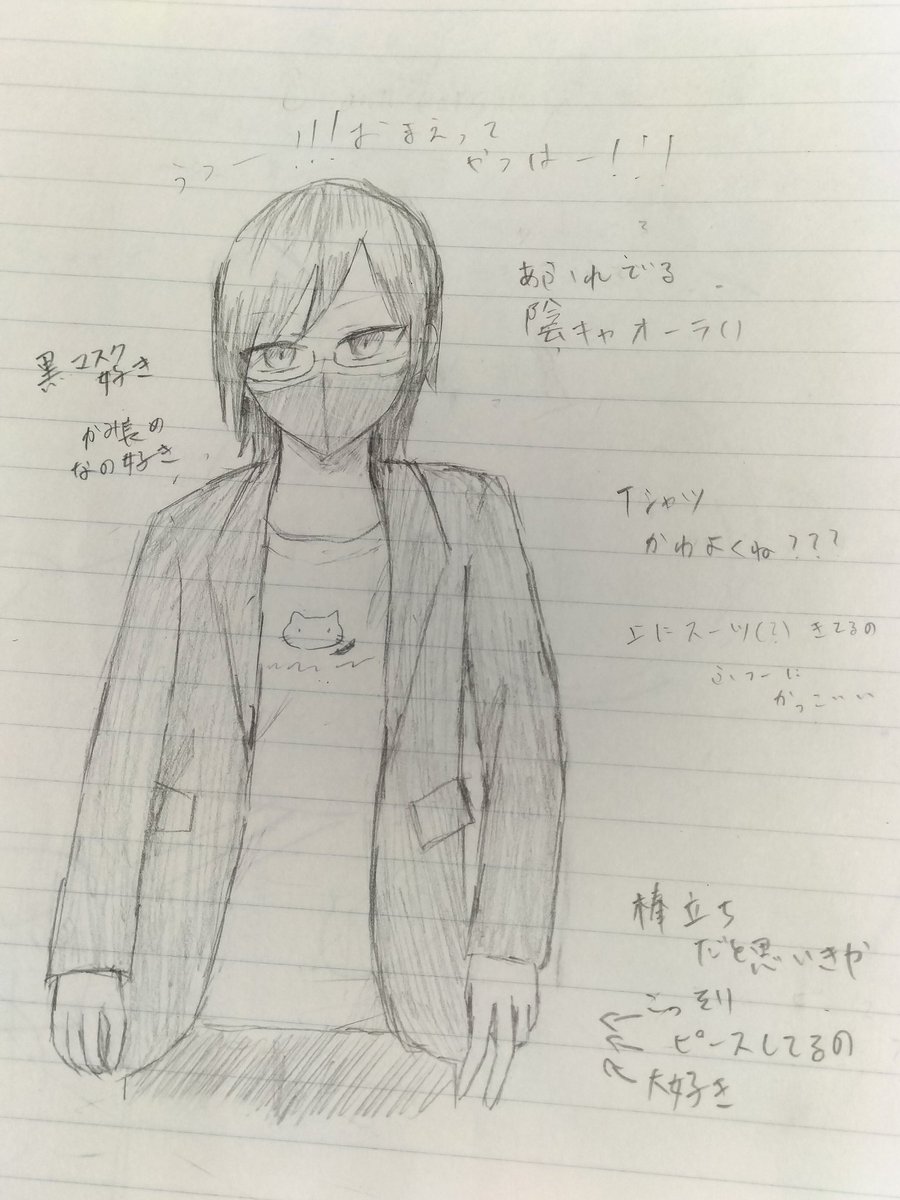 うっー!!!おまえって
やつはー!!!
あふれでる
陰キャオーラ()
黒マスク
好き
かみ長め
なの好き
Tシャツ
かわよくね???
上にスーツ(?)きてるの
ふつーに
かっこいい
棒立ち
だと思いきや
こっそり
ピースしてるの
大好き